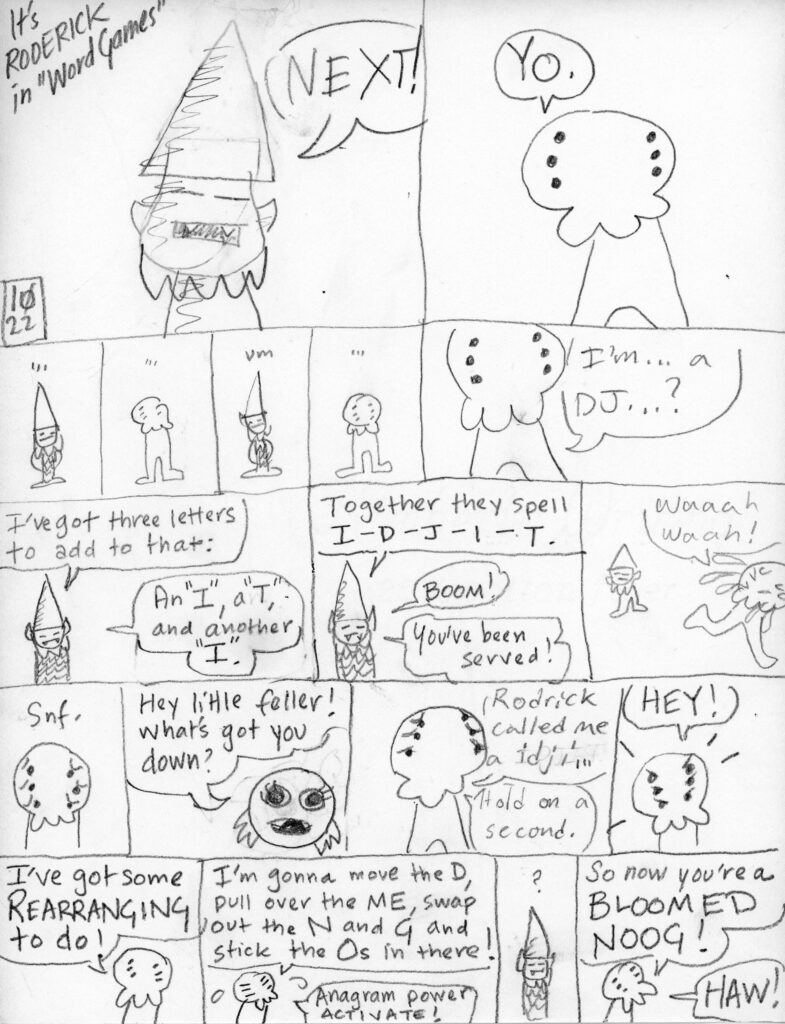 It's
RODERICK
in "Word Games"
NEXT!
YO.
10
22
...
...
um
...
I'm... a
DJ...?
I've got three letters
to add to that:
An "I", a "T",
and another
"I".
Together they spell
I-D-J-I-T.
BOOM!
You've been
served!
Waaah
waah!
Snf.
Hey little feller!
what's got you
down?
Rodrick
called me
a idji...
Hold on a
second.
HEY!
I've got some
REARRANGING
to do!
I'm gonna move the D,
pull over the ME, swap
out the N and G and
stick the Os in there!
Anagram power
ACTIVATE!
?
So now you're a
BLOOMED
NOOG!
HAW!